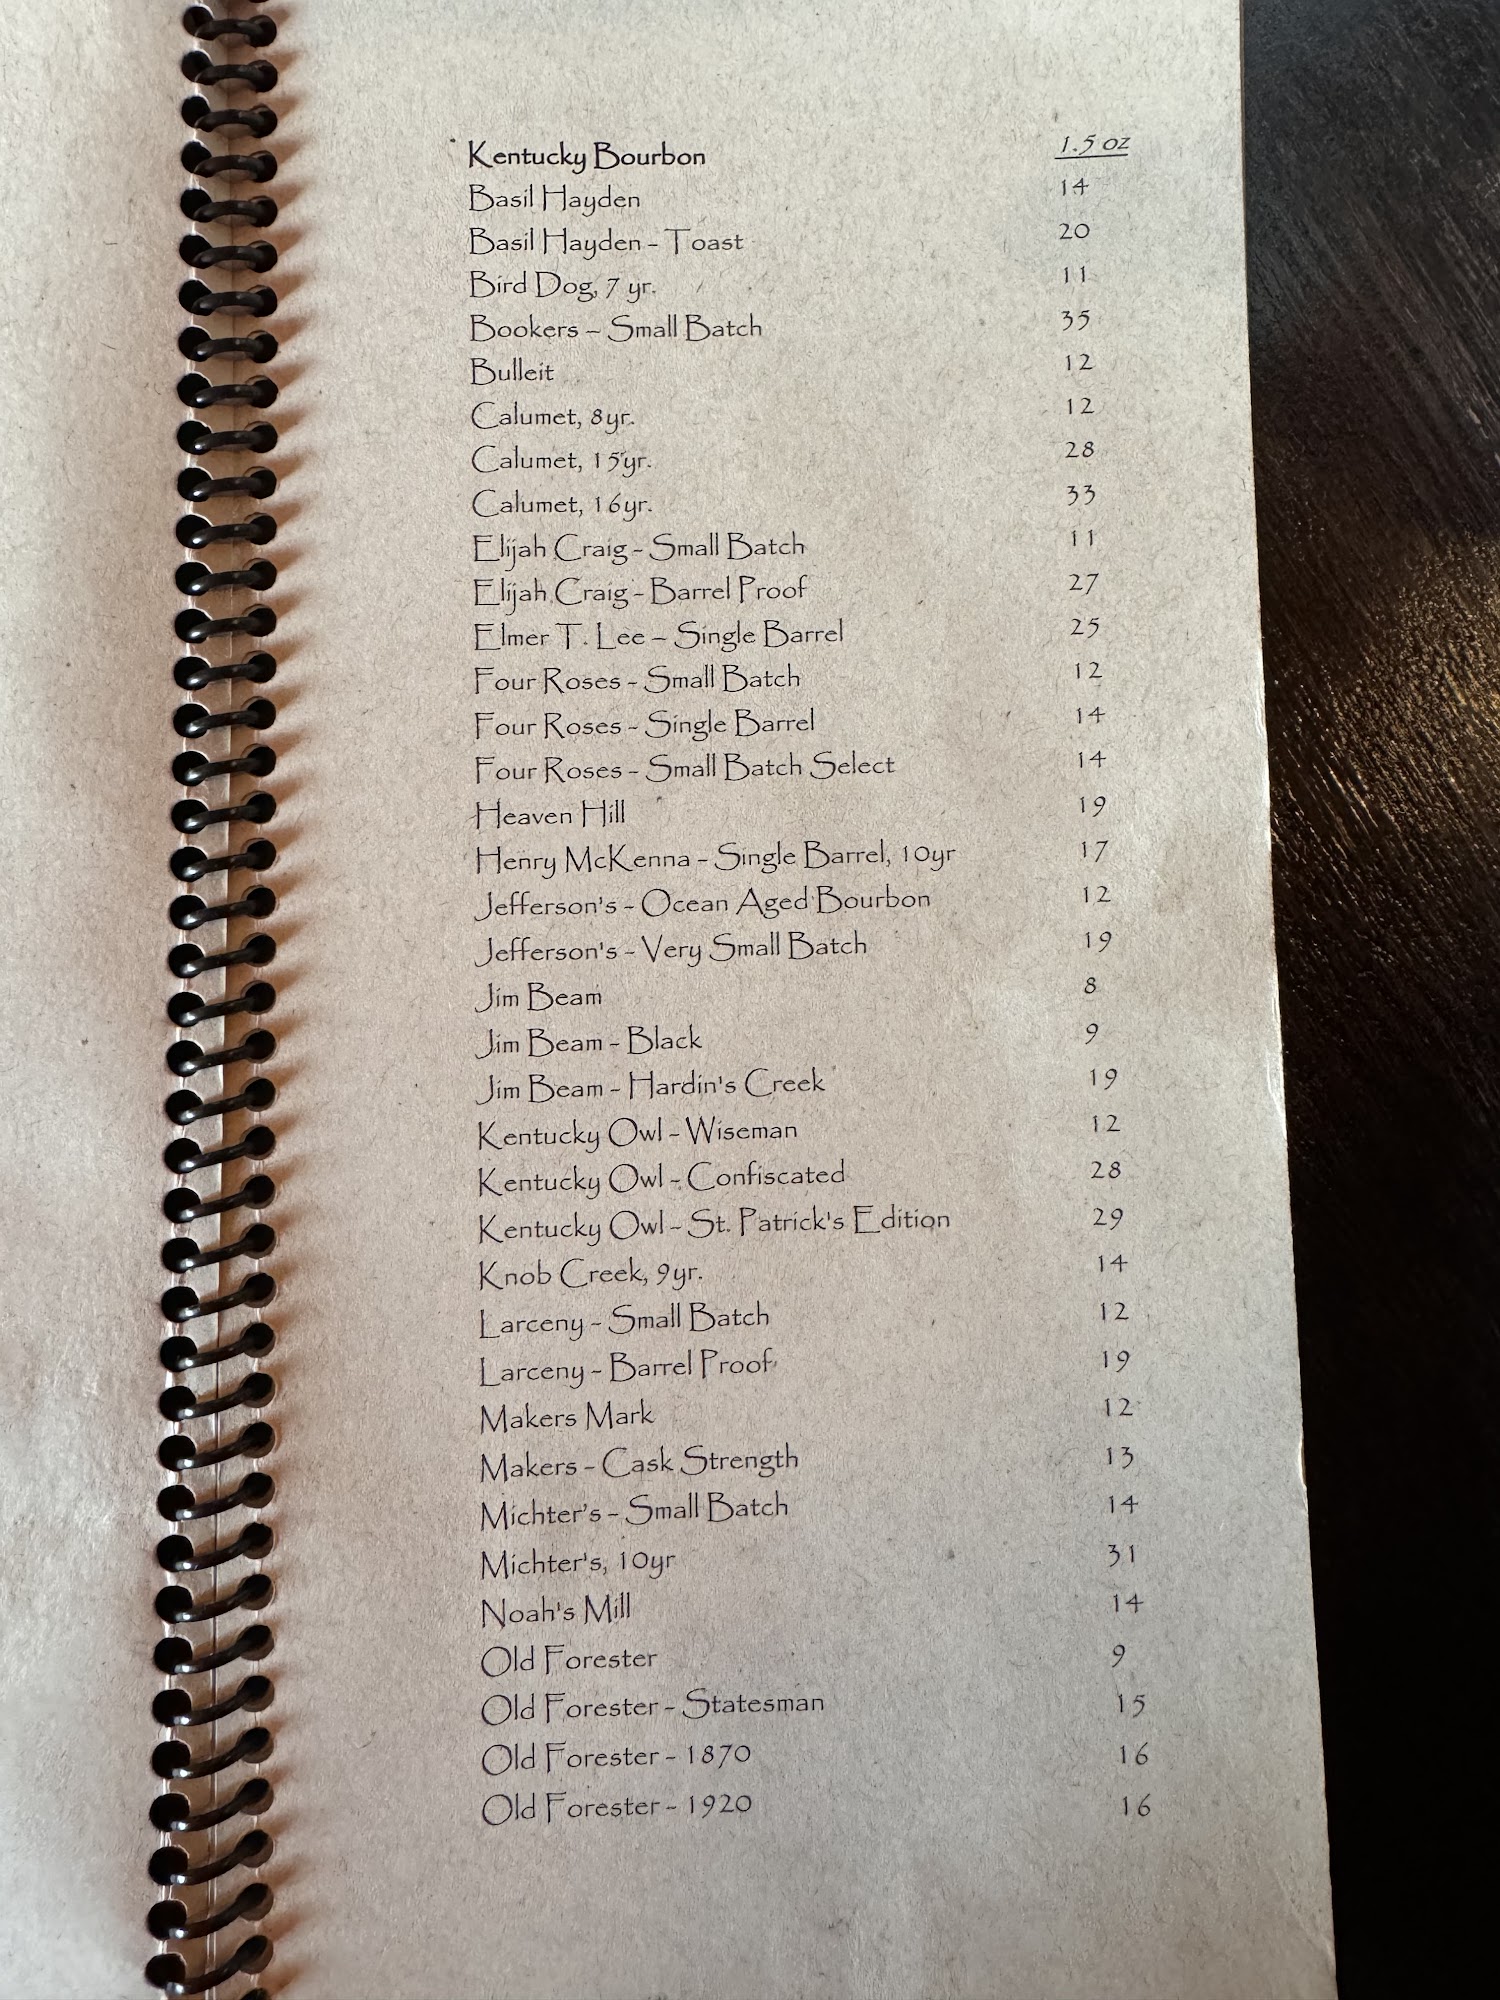 Kentucky Bourbon 1.5 oz
Basil Hayden 14
Basil Hayden - Toast 20
Bird Dog, 7 yr. 11
Bookers – Small Batch 35
Bulleit 12
Calumet, 8yr. 12
Calumet, 15yr. 28
Calumet, 16yr. 33
Elijah Craig - Small Batch 11
Elijah Craig - Barrel Proof 27
Elmer T. Lee – Single Barrel 25
Four Roses - Small Batch 12
Four Roses - Single Barrel 14
Four Roses - Small Batch Select 14
Heaven Hill 19
Henry McKenna - Single Barrel, 10yr 17
Jefferson's - Ocean Aged Bourbon 12
Jefferson's - Very Small Batch 19
Jim Beam 8
Jim Beam - Black 9
Jim Beam - Hardin's Creek 19
Kentucky Owl - Wiseman 12
Kentucky Owl - Confiscated 28
Kentucky Owl - St. Patrick's Edition 29
Knob Creek, 9yr. 14
Larceny - Small Batch 12
Larceny - Barrel Proof 19
Makers Mark 12
Makers - Cask Strength 13
Michter's - Small Batch 14
Michter's, 10yr 31
Noah's Mill 14
Old Forester 9
Old Forester - Statesman 15
Old Forester - 1870 16
Old Forester - 1920 16